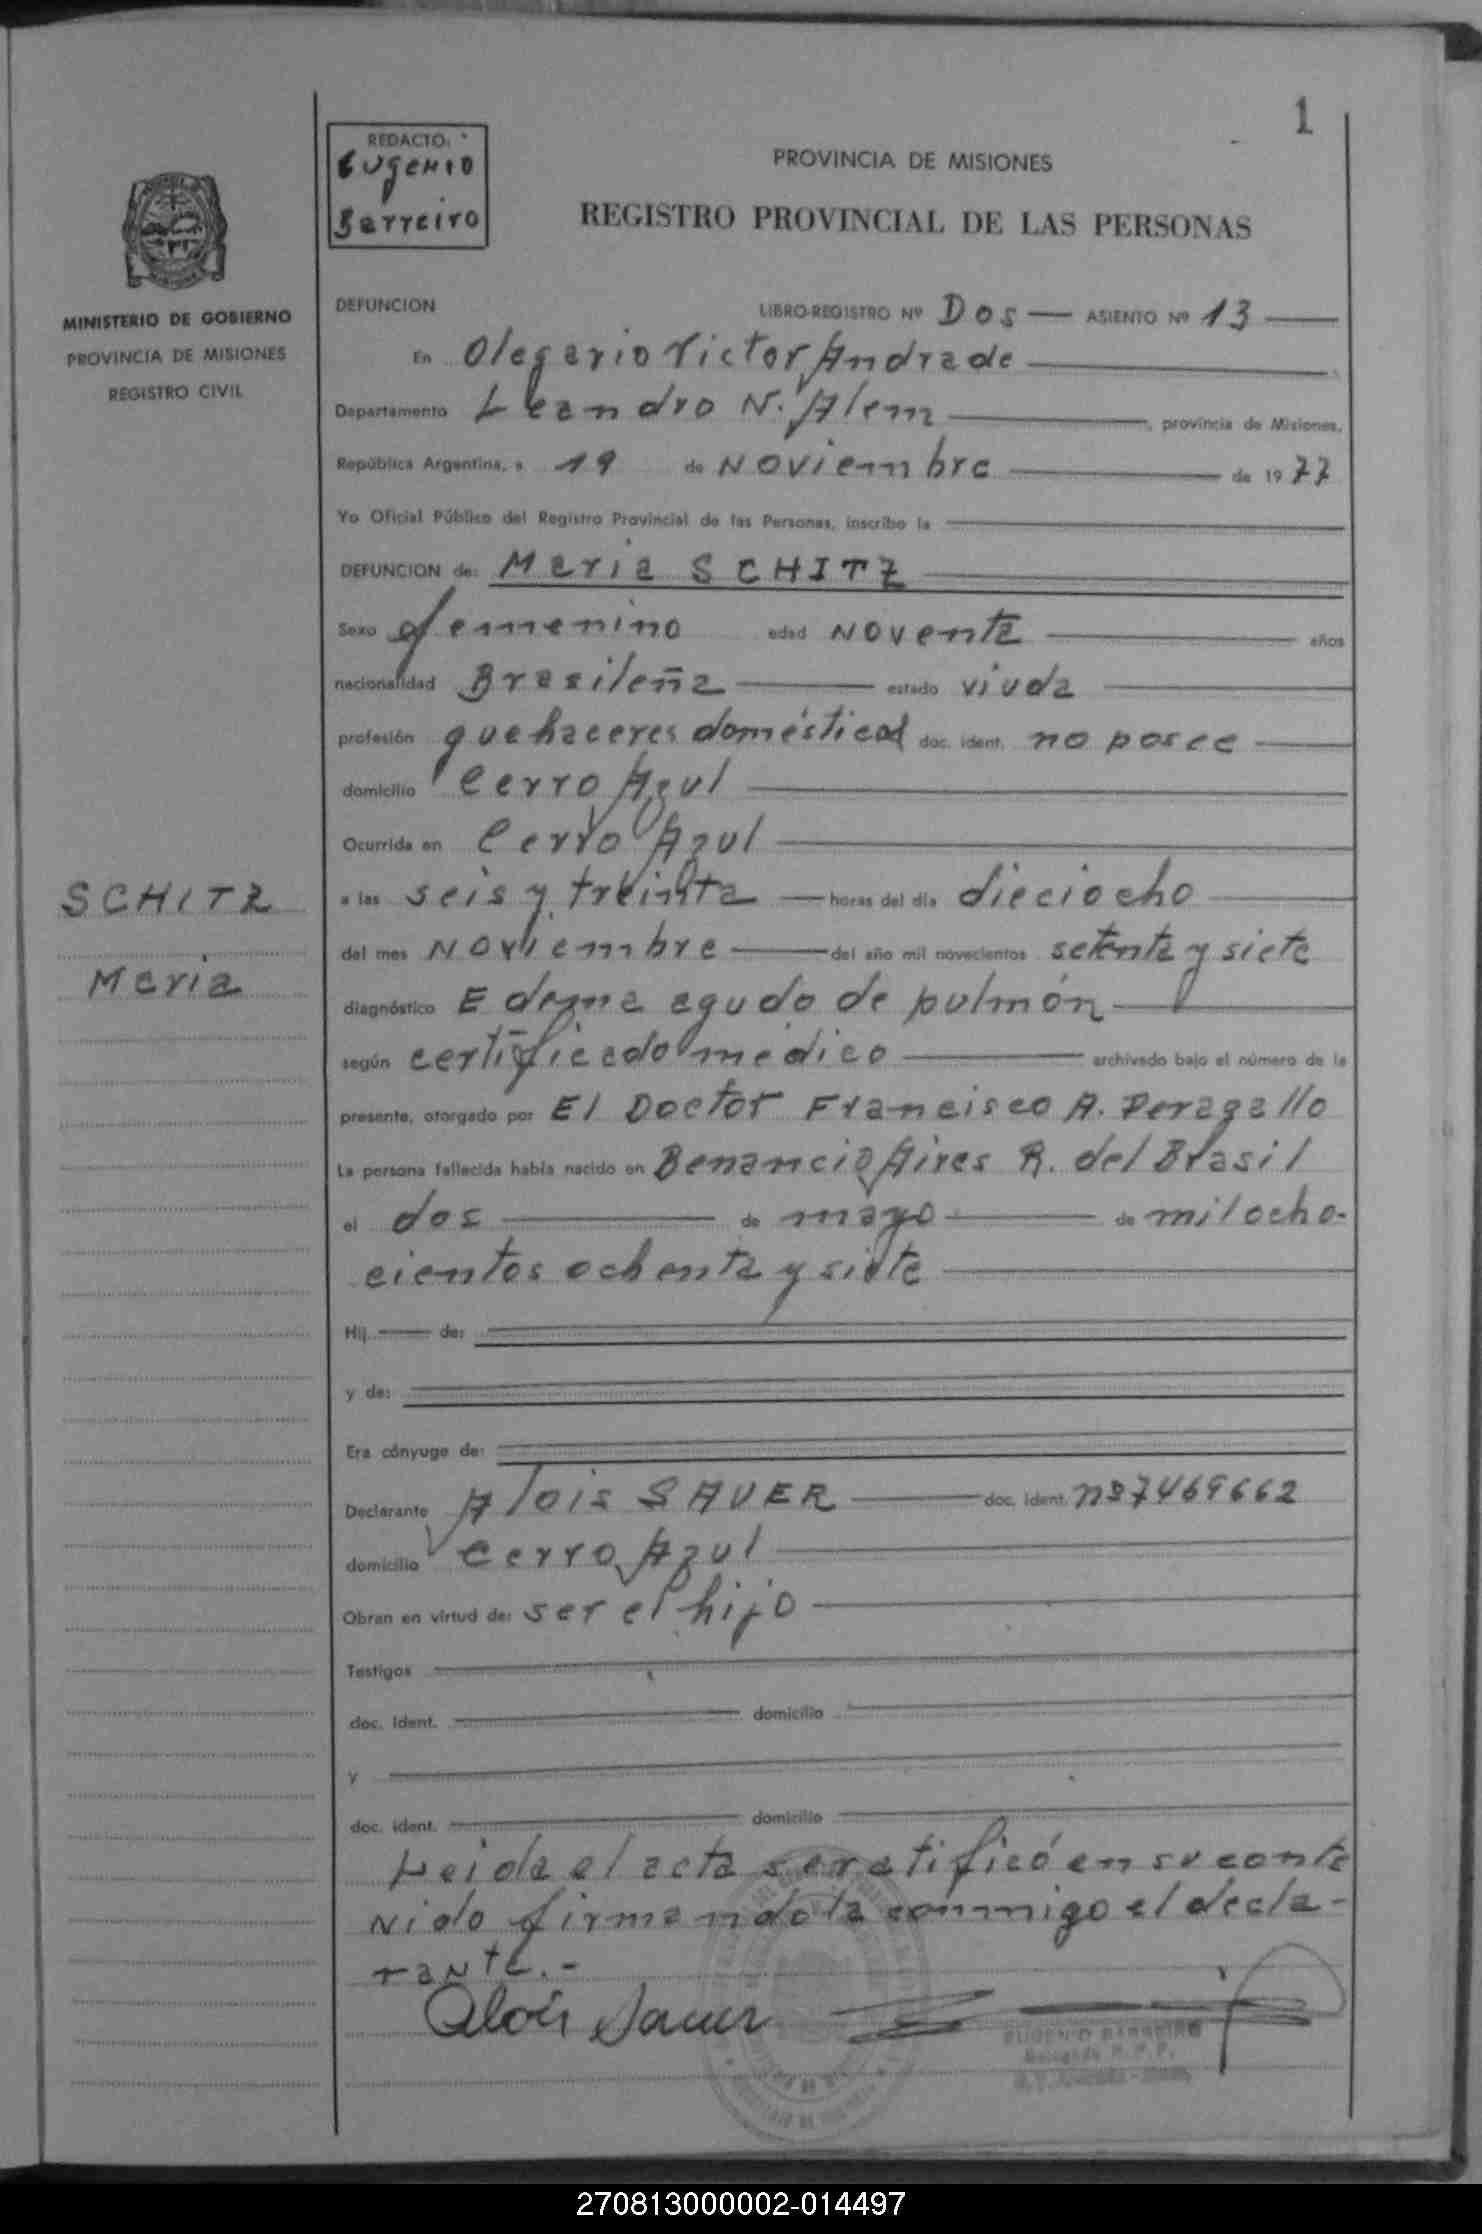 1
REDACTO:
Eugenio
Barreiro
PROVINCIA DE MISIONES
REGISTRO PROVINCIAL DE LAS PERSONAS
MINISTERIO DE GOBIERNO
PROVINCIA DE MISIONES
REGISTRO CIVIL
DEFUNCION LIBRO-REGISTRO Nº Dos ASIENTO Nº 13
En Olegario Victor Andrade
Departamento Leandro N. Alem, provincia de Misiones,
República Argentina, a 19 de Noviembre de 1977
Yo Oficial Público del Registro Provincial de las Personas, inscribo la
DEFUNCION de: Maria SCHITZ
Sexo femenino edad Noventa años
nacionalidad Brasileña estado viuda
profesión quehaceres domésticos doc. ident. no posee
domicilio Cerro Azul
Ocurrida en Cerro Azul
SCHITZ
Maria
a las seis y treinta horas del día dieciocho
del mes Noviembre del año mil novecientos setenta y siete
diagnóstico Edema agudo de pulmón
según certificado médico archivado bajo el número de la
presente, otorgado por El Doctor Francisco A. Peragallo
La persona fallecida había nacido en Benancio Aires R. del Brasil
el dos de mayo de mil ocho-
cientos ochenta y siete
Hij de:
y de:
Era cónyuge de:
Declarante Alois SAUER doc. ident. nº 7469662
domicilio Cerro Azul
Obran en virtud de: ser el hijo
Testigos
doc. ident. domicilio
y
doc. ident. domicilio
Leida el acta se ratificó en su conte
nido firmandola conmigo el decla-
rante.-
Alois Sauer
EUGENIO BARREIRO
270813000002-014497